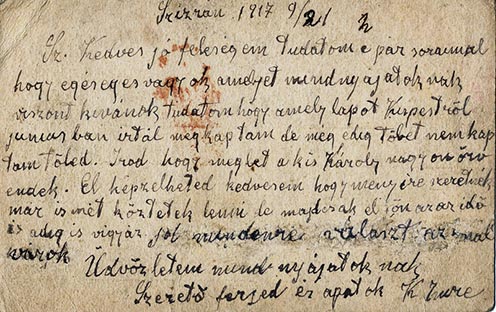 Szizran 1917 9/21
Sz. Kedves jó feleségem Tudatom e pár soraimal
hogy egéségesvagyok amelyet mindnyajatok nak
viszont kevánok tudatom hogy amely lapot Kupestről
juniusban irtál megkaptam de még edig többet nem kap
tam tőled. Irod hogy meglet a kis Károly nagyon örv
endek. El képzelheted kedvesem hogy menyére szeretnék
már ismét köztetek lenni de majdcsak el jön azaz idő
és adig is vigyáz jól mindenre választ azonal
várok
Üdvözletem mind nyájatok nak
Szerető ferjed és apátok K Imre